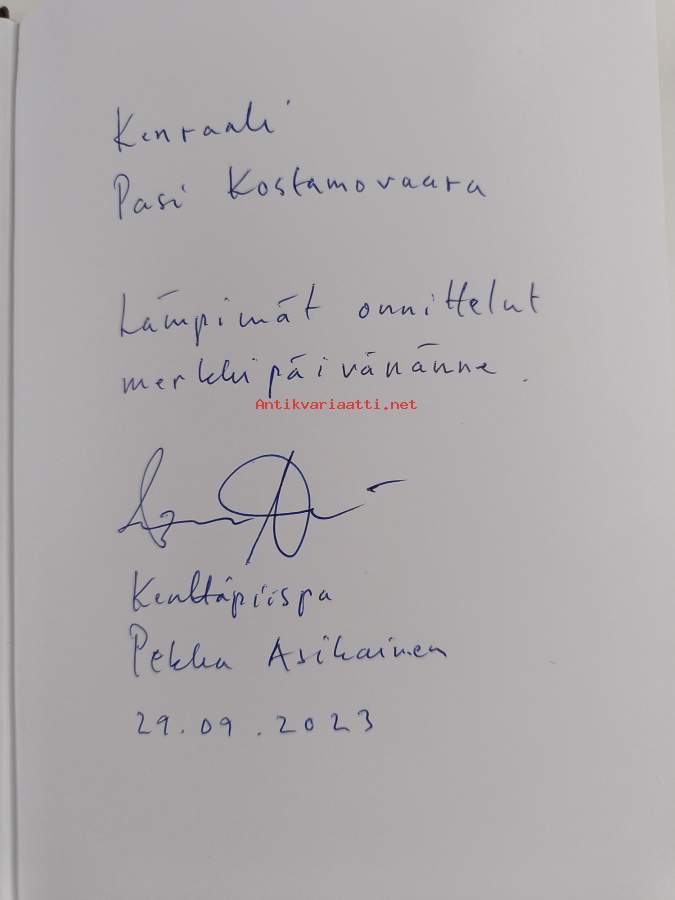 Kenraali
Pasi Kostamovaara
Lämpimät onnittelut
merkkipäivänänne.
Antikvariaatti.net
Kenttäpiispa
Pekka Asikainen
29.09.2023